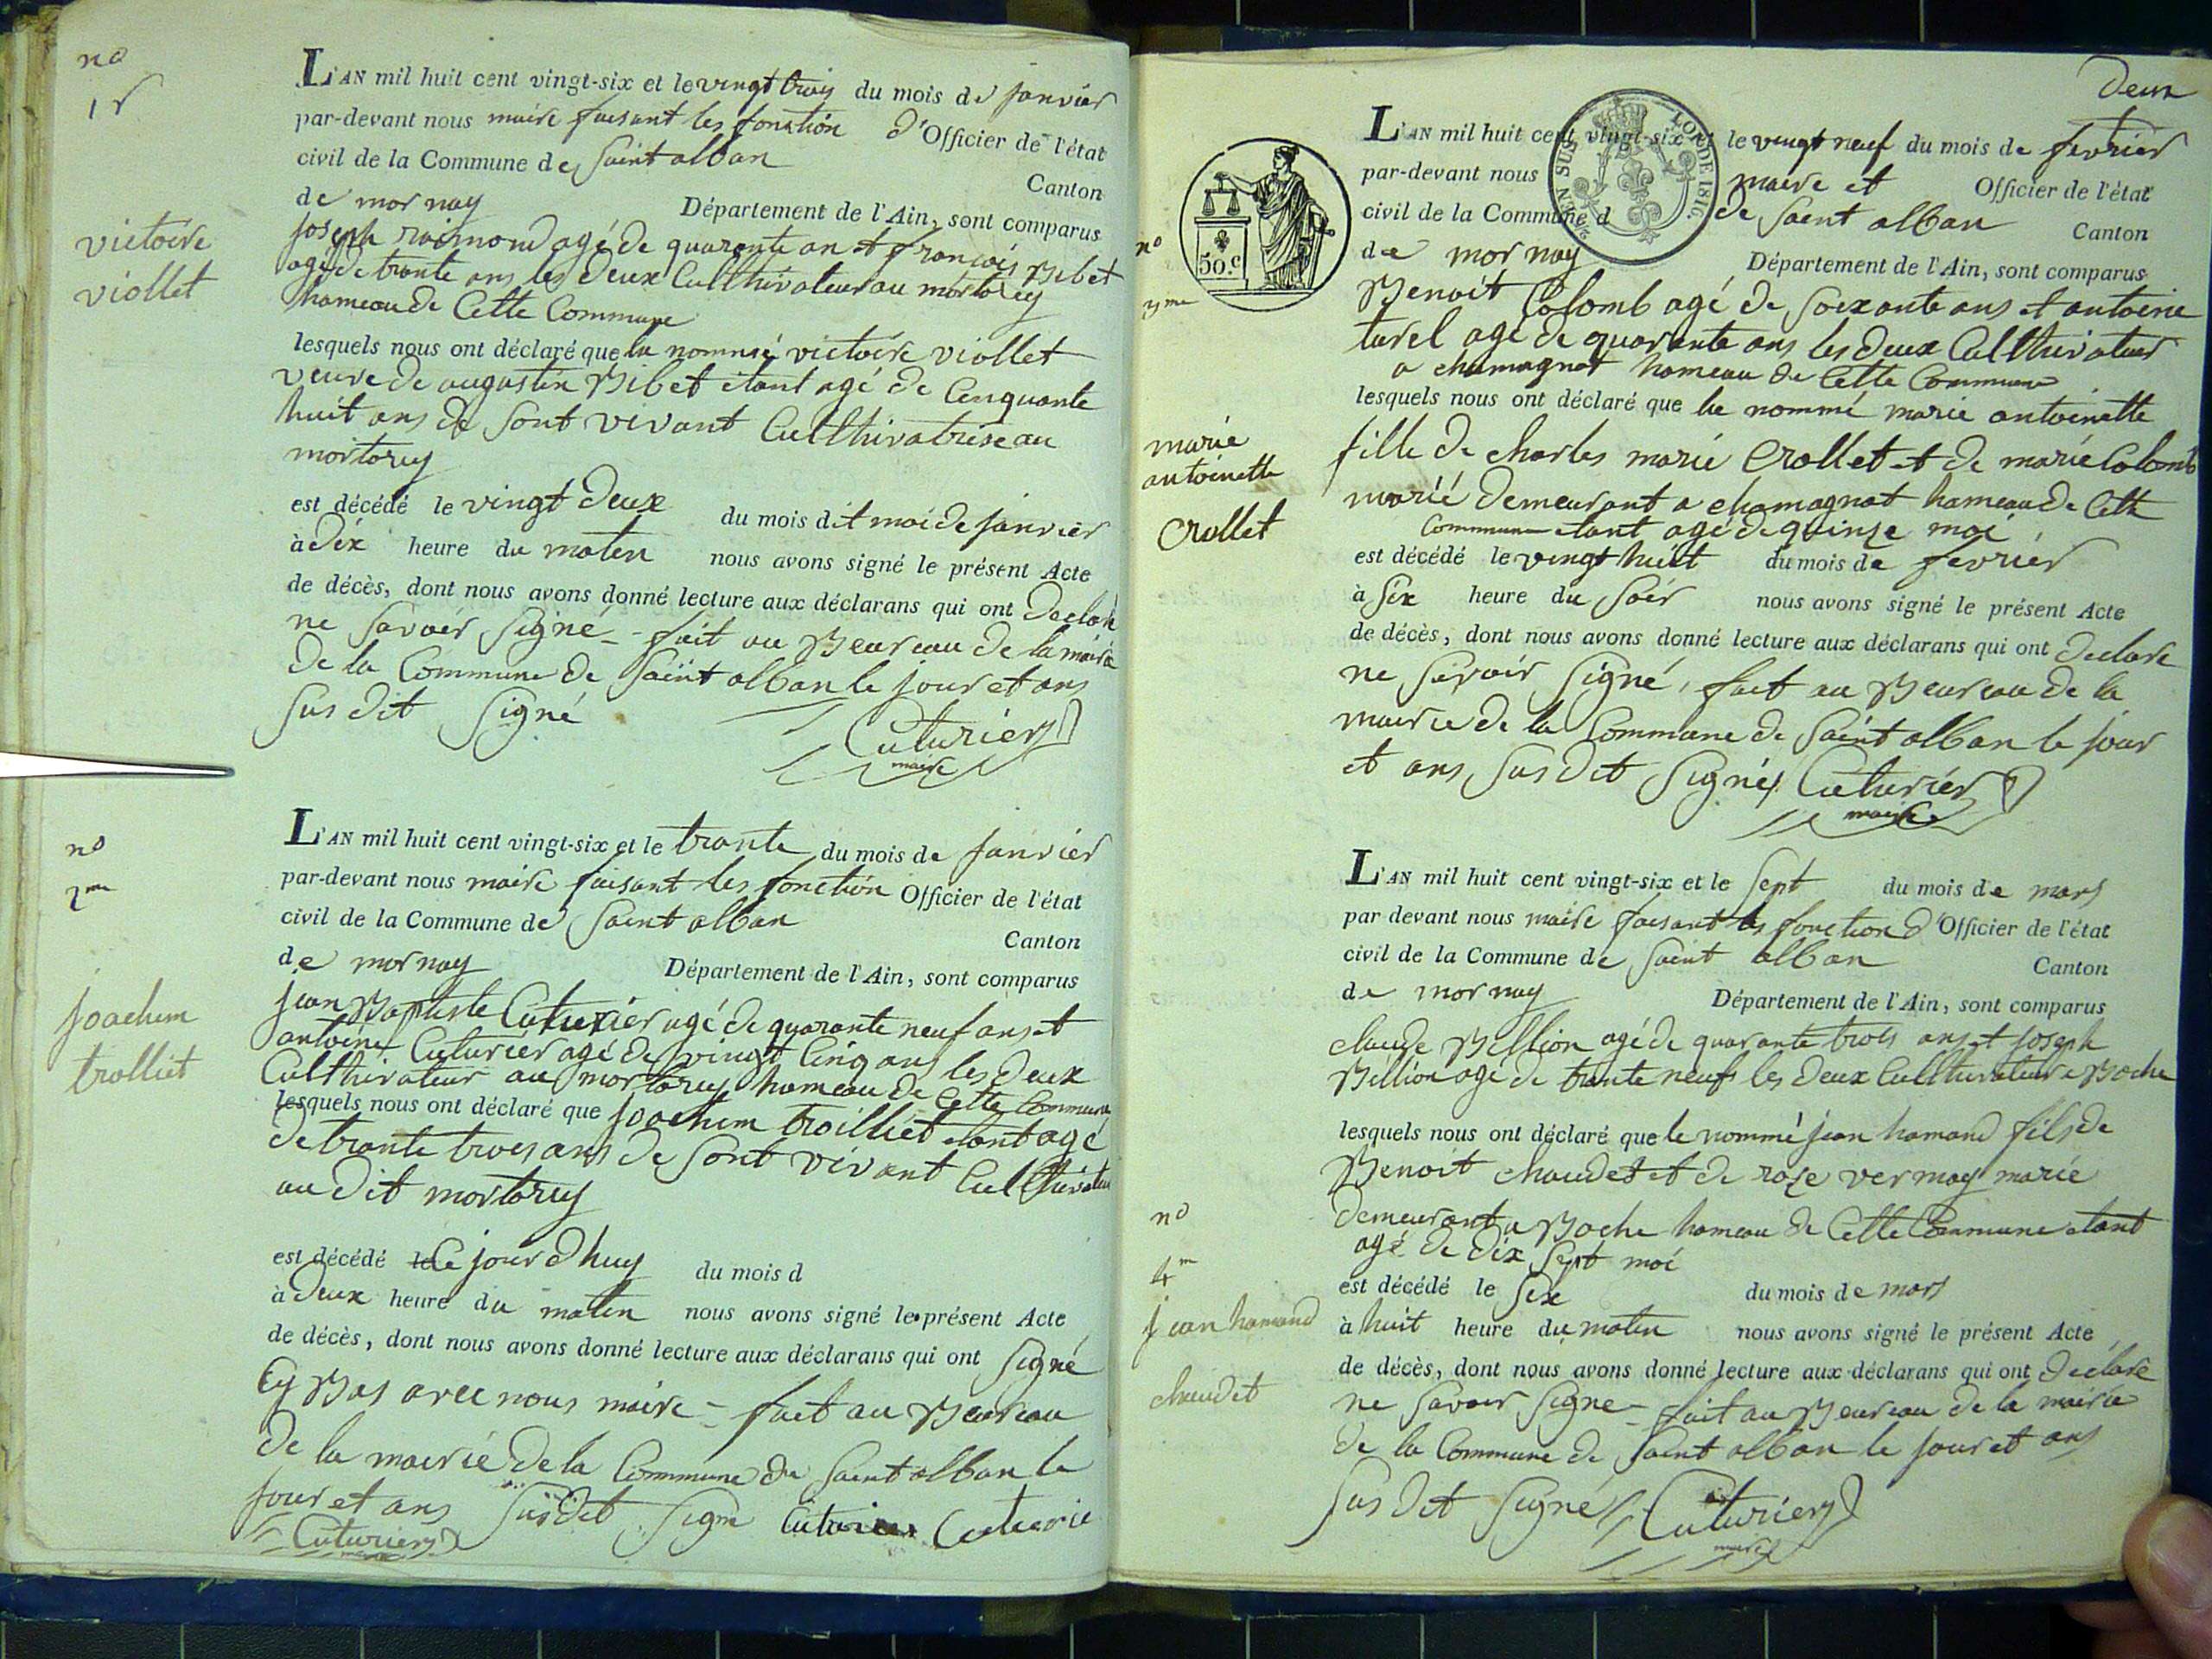 no
1r
victoire
viollet
L'AN mil huit cent vingt-six et le vingt trois du mois de janvier
par-devant nous maire faisant les fonction d'Officier de l'état
civil de la Commune de Saint alban
Canton
de mornay Département de l'Ain, sont comparus
joseph raimond agé de quarante an et francois Bibet
agé de trante ans les deux Cullthivateur au mortarey
hameau de Cette Commune
lesquels nous ont déclaré que la nommé victoire viollet
veuve de augustin Bibet étant agé de Cinquante
huit ans de Sont vivant Cullthivatrise au
mortarey
est décédé le vingt deux du mois dit moi de janvier
à dix heure du maten nous avons signé le présent Acte
de décès, dont nous avons donné lecture aux déclarans qui ont declaré
ne Savoir Signé - fait au Beureau de la mairie
de la Commune de Saint alban le jour et ans
Sus dit Signé
Cuturier
maire
no
2me
joachim
trolliet
L'AN mil huit cent vingt-six et le trante du mois de janvier
par-devant nous maire faisant les fonction Officier de l'état
civil de la Commune de Saint alban
Canton
de mornay Département de l'Ain, sont comparus
jean Baptiste Cuturier agé de quarante neuf ans et
antoine Cuturier agé de vingt Cinq ans les deux
Cullthivateur au mortarey hameau de Cette Commune
lesquels nous ont déclaré que joachim troilliet étant agé
de trante trois ans de Sont vivant Cullthivateur
au dit mortarey
est décédé le Ce jour d huy du mois d
à deux heure du maten nous avons signé le présent Acte
de décès, dont nous avons donné lecture aux déclarans qui ont Signé
Cy Bas avec nous maire - fait au Beureau
de la mairie de la Commune de Saint alban le
jour et ans Sus dit Signé Cuturier Cuturie
Cuturier
deux
50.c
EN SUS
LOI DE 1816.
no
3me
marie
antoinette
Crollet
L'AN mil huit cent vingt-six et le vingt neuf du mois de fevrier
par-devant nous maire et Officier de l'état
civil de la Commune d de Saint alban
Canton
de mornay Département de l'Ain, sont comparus
Benoit Colomb agé de Soixante ans et antoine
turel agé de quarante ans les deux Cullthivateur
a chamagnat hameau de Cette Commune
lesquels nous ont déclaré que la nommé marie antoinette
fille de charles marie Crollet et de marie Colomb
marié demeurant a chamagnat hameau de Cette
Commune étant agé de quinze moi
est décédé le vingt huit du mois de fevrier
à Six heure du Soir nous avons signé le présent Acte
de décès, dont nous avons donné lecture aux déclarans qui ont declaré
ne Savoir Signé, fait au Beureau de la
mairie de la Commune de Saint alban le jour
et ans Sus dit Signé Cuturier
maire
no
4m
jean hamand
chaudet
L'AN mil huit cent vingt-six et le Sept du mois de mars
par devant nous maire faisant les fonction d'Officier de l'état
civil de la Commune de Saint alban
Canton
de mornay Département de l'Ain, sont comparus
claude Billion agé de quarante trois ans et joseph
Billion agé de trante neuf les deux Cullthivateur a Boche
lesquels nous ont déclaré que le nommé jean hamand fils de
Benoit chaudet et de roze vermay marié
demeurant a Boche hameau de Cette Commune étant
agé de dix Sept moi
est décédé le Six du mois de mars
à huit heure du maten nous avons signé le présent Acte
de décès, dont nous avons donné lecture aux déclarans qui ont declaré
ne Savoir Signé - fait au Beureau de la mairie
de la Commune de Saint alban le jour et ans
Sus dit Signé Cuturier
maire